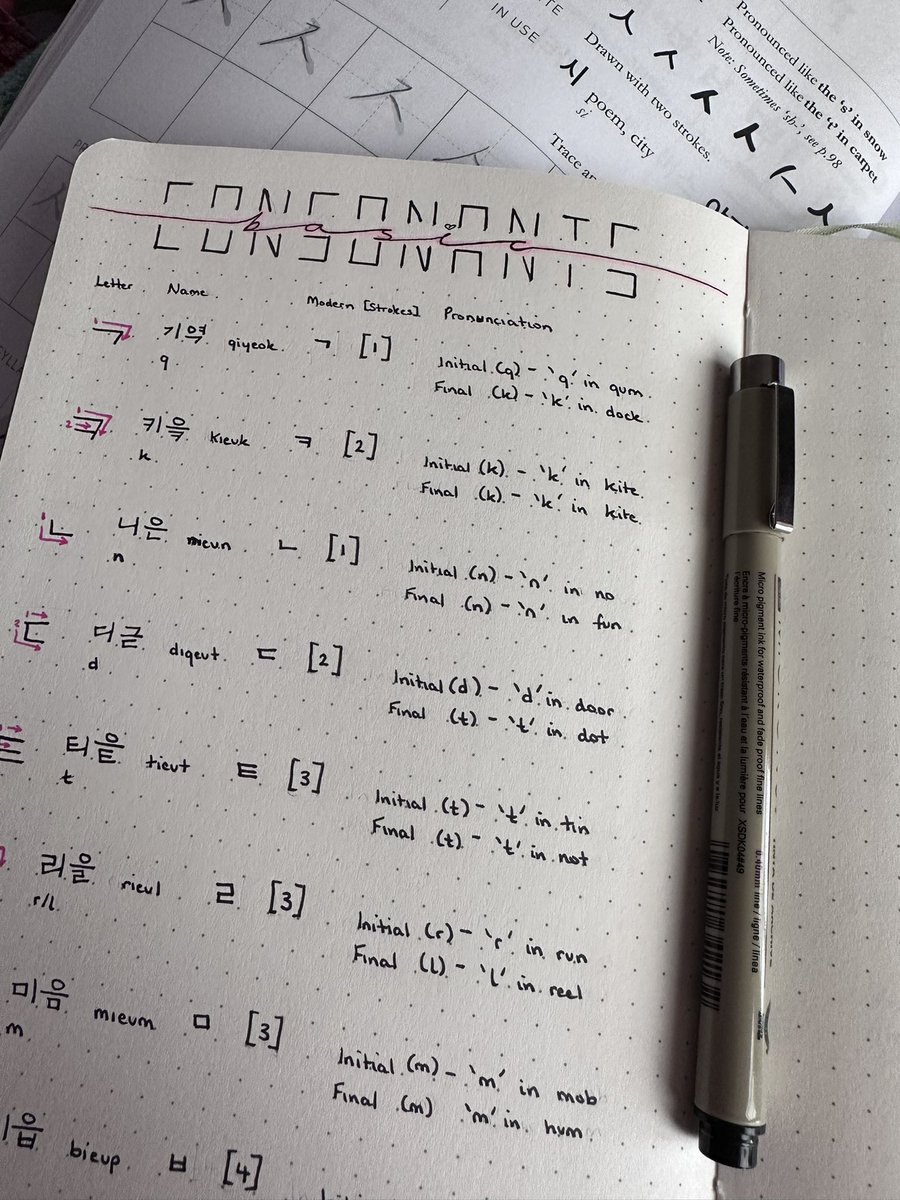 IN USE
시 poem, city
si
Drawn with two strokes.
Pronounced like the 's' in snow
Pronounced like the 't' in carpet
Note: Sometimes 'sh-', see p.98
CONSONANTS
basic
Letter Name Modern [Strokes] Pronunciation
ㄱ 기역 giyeok ㄱ [1] Initial (g) - 'g' in gum
g Final (k) - 'k' in dock
ㅋ 키윽 kieuk ㅋ [2] Initial (k) - 'k' in kite
k Final (k) - 'k' in kite
ㄴ 니은 nieun ㄴ [1] Initial (n) - 'n' in no
n Final (n) - 'n' in fun
ㄷ 디귿 digeut ㄷ [2] Initial (d) - 'd' in door
d Final (t) - 't' in dot
ㅌ 티읕 tieut ㅌ [3] Initial (t) - 't' in tin
t Final (t) - 't' in not
리을 rieul ㄹ [3] Initial (r) - 'r' in run
r/l Final (l) - 'l' in reel
미음 mieum ㅁ [3] Initial (m) - 'm' in mob
m Final (m) 'm' in hum
읍 bieup ㅂ [4]
Micro pigment ink for waterproof and fade proof fine lines
Encre à micro-pigments résistant à l'eau et à la lumière pour
l'écriture fine
XSDK04#49
line / ligne / línea